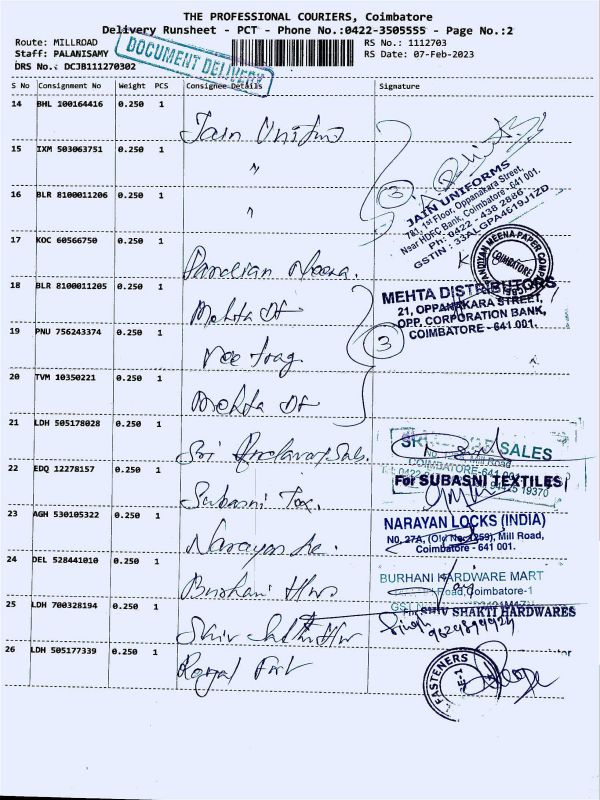 THE PROFESSIONAL COURIERS, Coimbatore
Delivery Runsheet - PCT - Phone No.:0422-3505555 - Page No.:2
Route: MILLROAD RS No.: 1112703
Staff: PALANISAMY RS Date: 07-Feb-2023
DRS No.: DCJB111270302
DOCUMENT DELIVERY
S No Consignment No Weight PCS Consignee Details Signature
14 BHL 100164416 0.250 1 Jain Uniform
15 IXM 503063751 0.250 1 "
16 BLR 8100011206 0.250 1 "
3
JAIN UNIFORMS
781, 1st Floor, Oppanakara Street,
Near HDFC Bank, Coimbatore - 641 001.
Ph: 0422 - 438 2886
GSTIN : 33ALGPA4619J1ZD
17 KOC 60566750 0.250 1 Pandian Meena.
PANDIYAN MEENA PAPER COMPANY
COIMBATORE
18 BLR 8100011205 0.250 1 Mehta Dt
19 PNU 756243374 0.250 1
20 TVM 10350221 0.250 1 Mehta Dt
3
MEHTA DISTRIBUTORS
21, OPPANAKARA STREET,
OPP. CORPORATION BANK,
COIMBATORE - 641 001.
21 LDH 505178028 0.250 1 Sri
SALES
Mill Road
COIMBATORE-641 001
94425 19370
22 EDQ 12278157 0.250 1 Subasni Tex.
For SUBASNI TEXTILES
23 AGH 530105322 0.250 1 Narayan
NARAYAN LOCKS (INDIA)
NO, 27A, (Old No:1259), Mill Road,
Coimbatore - 641 001.
24 DEL 528441010 0.250 1 Burhani Hws
BURHANI HARDWARE MART
Road, Coimbatore-1
25 LDH 700328194 0.250 1 Shiv Sakthi Hw
For SHIV SHAKTI HARDWARES
Singh
26 LDH 505177339 0.250 1 Royal Fast
FASTENERS